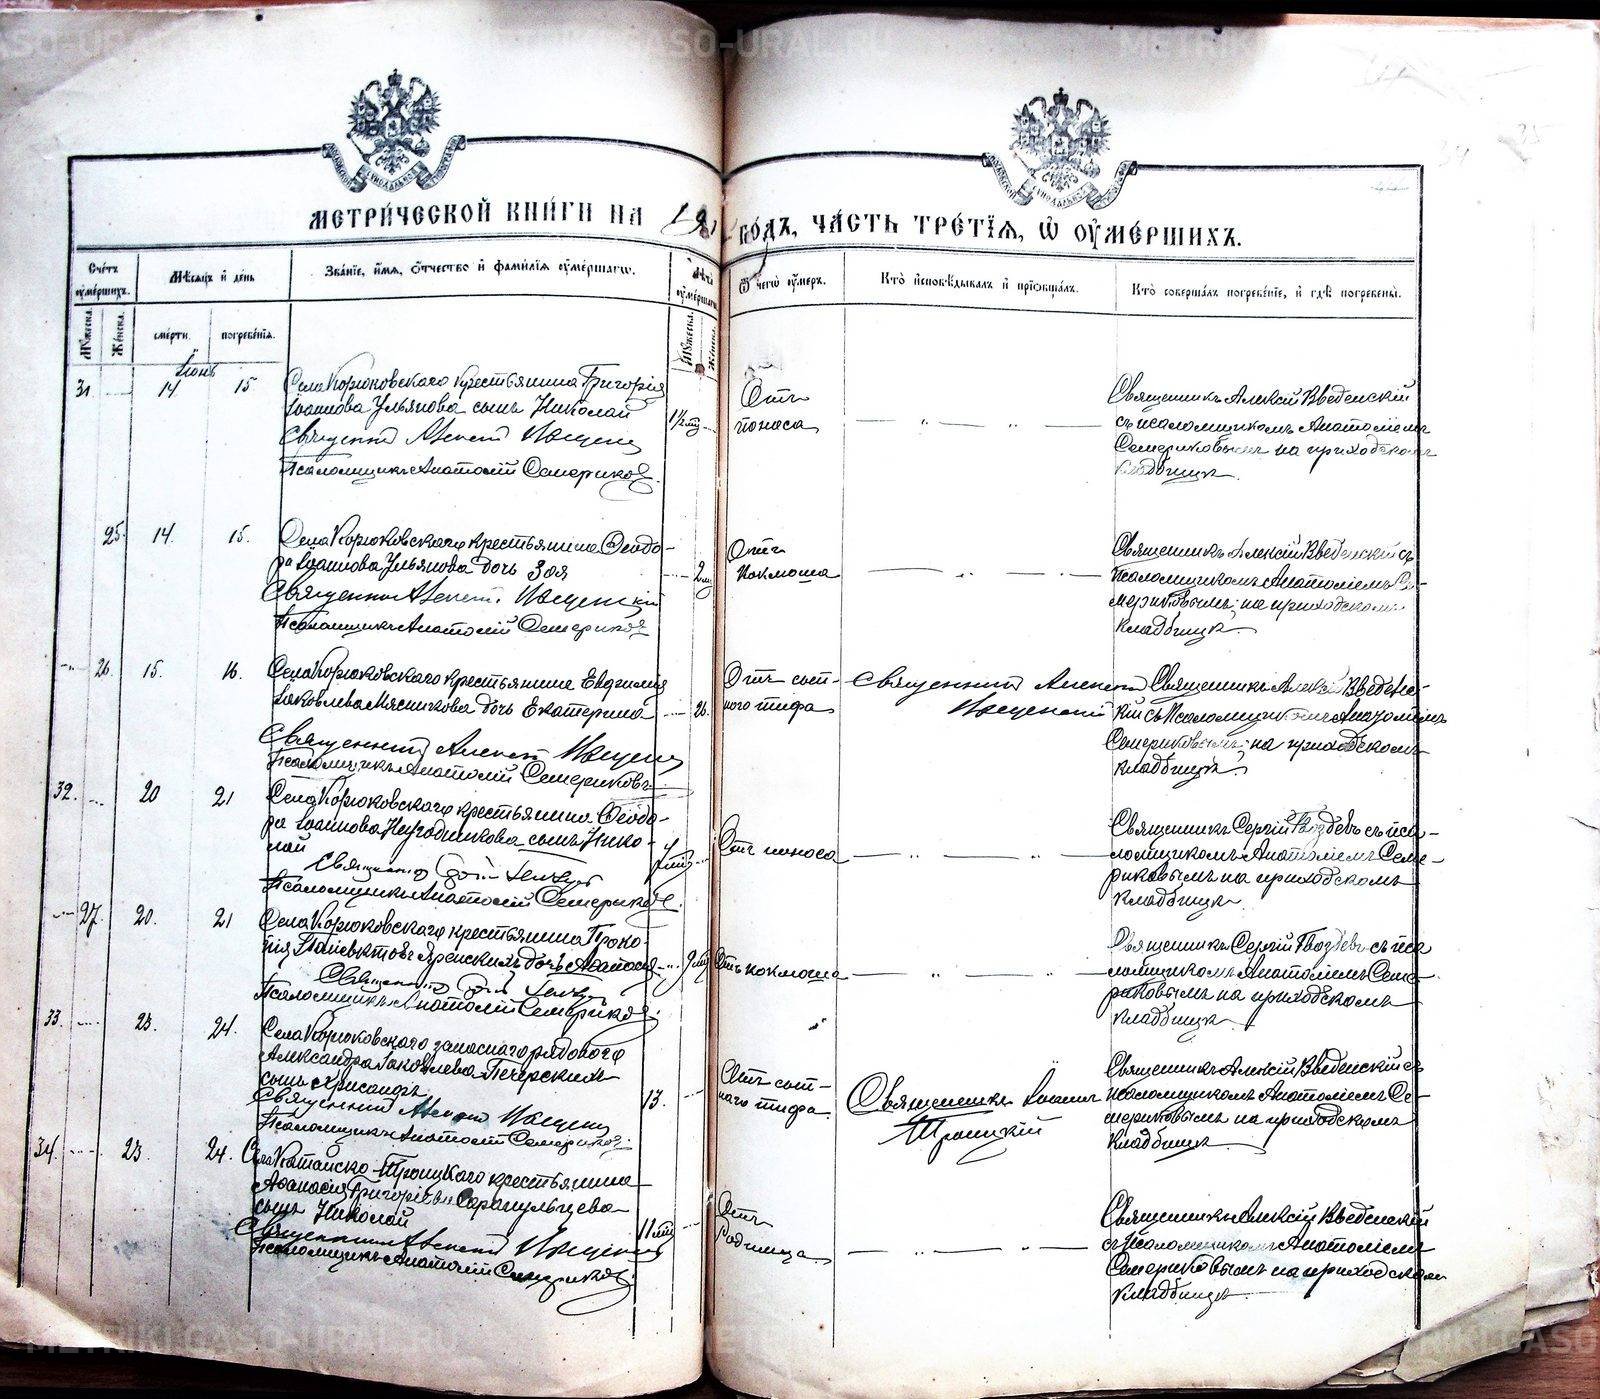 METRIKI.GASO-URAL.RU
МЕТРИ́ЧЕСКОЙ КНИ́ГИ НА
ГО́ДЪ, ЧА́СТЬ ТРЕ́ТЇЯ, Ѡ ОУМЕ́РШИХЪ.
Сче́тъ оуме́ршихъ.
Мѣсяцъ и де́нь
Зва́нїе, и́мя, о́тчество и фами́лїя оуме́ршагѡ.
Лѣта оуме́ршагѡ
Ѿ чегѡ̀ оу́меръ.
Кто̀ исповѣ́дывалъ и прїѡбща́лъ.
Кто̀ соверша́лъ погребе́нїе, и гдѣ̀ погребены̀.
Му́жеска.
Же́нска.
сме́рти.
погребе́нїя.
Му́жеска.
Же́нска.
Іюнь
31
14
15.
Села Корюковскаго крестьянина Григорія
Іоаннова Ульянова сынъ Николай
Священникъ Алексій Введенскій
Псаломщикъ Анатолій Семериковъ
Отъ
поноса
Священникъ Алексій Введенскій
съ псаломщикомъ Анатоліемъ
Семериковымъ на приходскомъ
кладбищѣ.
25.
14.
15.
Села Корюковскаго крестьянина Ѳеодо-
ра Іоаннова Ульянова дочь Зоя
Священникъ Алексій Введенскій
Псаломщикъ Анатолій Семериковъ
Отъ
коклюша
Священникъ Алексій Введенскій съ
псаломщикомъ Анатоліемъ Се-
мериковымъ на приходскомъ
кладбищѣ.
26.
15.
16.
Села Корюковскаго крестьянина Евфимія
Іаковлева Мясникова дочь Екатерина
26.
Священникъ Алексій Введенскій
Псаломщикъ Анатолій Семериковъ
Отъ сып-
ного тифа
Священникъ Алексій
Введенскій
Священникъ Алексій Введенс-
кій съ Псаломщикомъ Анатоліемъ
Семериковымъ на приходскомъ
кладбищѣ
32.
20
21
Села Корюковскаго крестьянина Ѳеодо-
ра Іоаннова сынъ Нико-
лай
Священникъ
Псаломщикъ Анатолій Семериковъ.
Отъ поноса
Священникъ Сергій Гвоздевъ съ пса-
ломщикомъ Анатоліемъ Семе-
риковымъ на приходскомъ
кладбищѣ.
27.
20.
21
Села Корюковскаго крестьянина Проко-
пія дочь
Священникъ
Псаломщикъ Анатолій Семериковъ
Отъ коклюша
Священникъ Сергій Гвоздевъ съ пса
ломщикомъ Анатоліемъ Семе-
риковымъ на приходскомъ
кладбищѣ
33.
23.
24.
Села Корюковскаго запаснаго рядового
Александра Іаковлева Печерскихъ
сынъ Хрисанѳъ
13.
Священникъ Алексій Введенскій
Псаломщикъ Анатолій Семериковъ
Отъ сып-
наго тифа
Священникъ Іоаннъ
Троицкій
Священникъ Алексій Введенскій съ
псаломщикомъ Анатоліемъ Се-
мериковымъ на приходскомъ
кладбищѣ
34.
23.
24.
Села Катайско-Троицкаго крестьянина
Аѳанасія Григоріева Сарапульцева
сынъ Николай
Священникъ Алексій Введенскій
Псаломщикъ Анатолій Семериковъ
Отъ
родимца
Священникъ Алексій Введенскій
съ псаломщикомъ Анатоліемъ
Семериковымъ на приходскомъ
кладбищѣ
METRIKI.GASO-URAL.RU